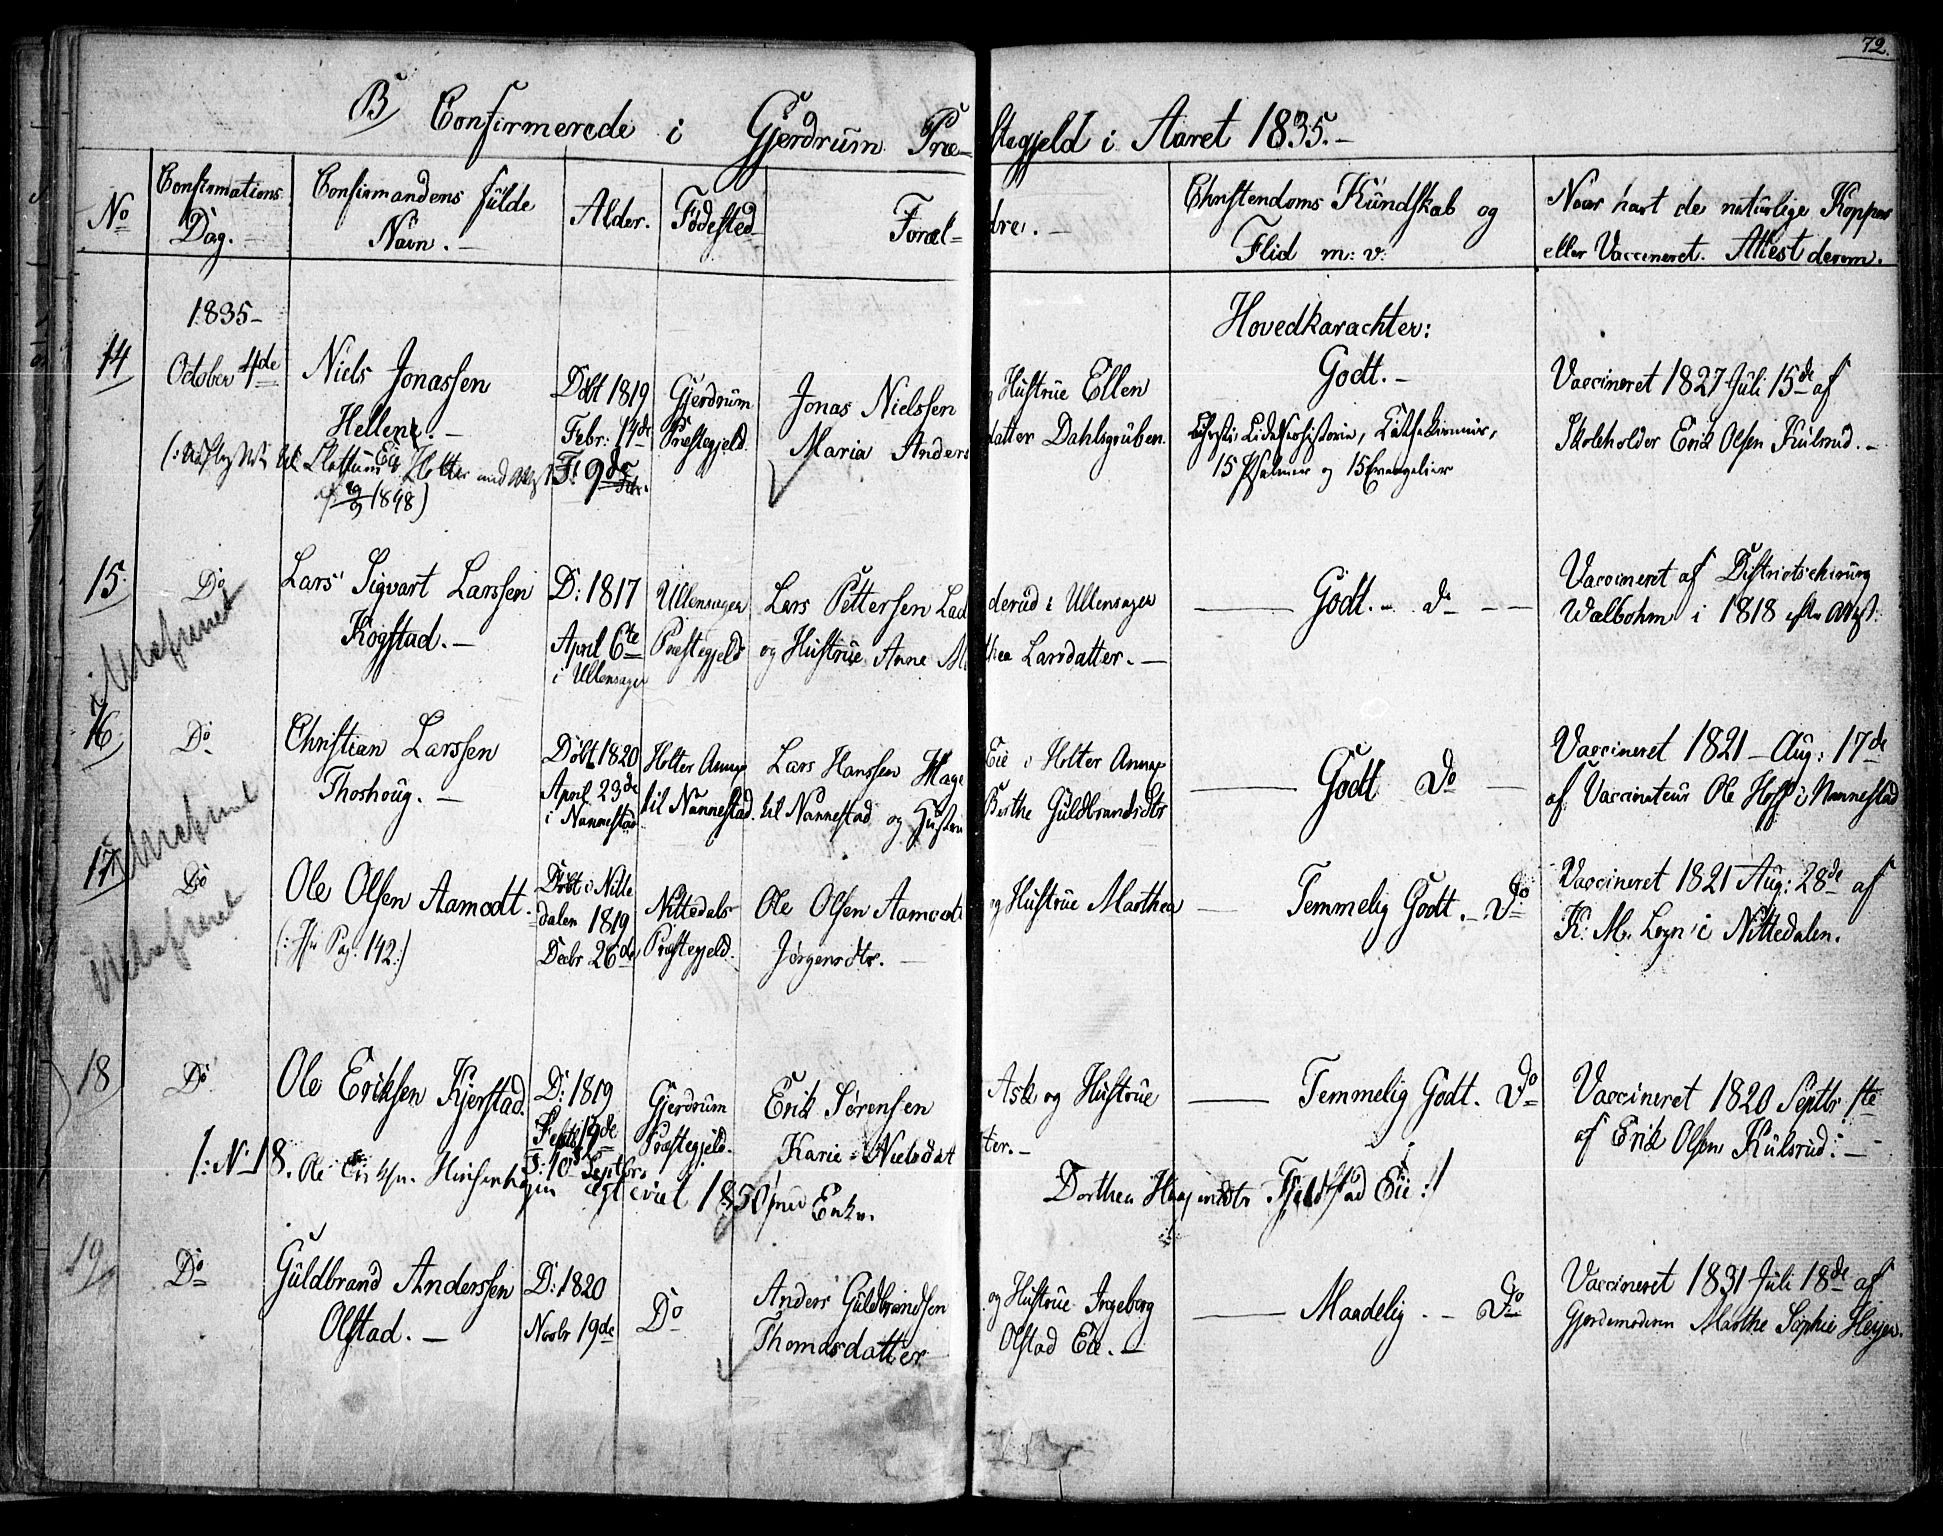 72.
B) Confirmerede i Gjerdrum Præstegjeld i Aaret 1835.-
No
Confirmations Dag.-
Confirmandens fulde Navn.-
Alder.
Fødested
Forældre.-
Christendoms Kundskab og Flid m: v:
Naar havt de naturlige Kopper eller Vaccineret. Attest derom.
1835-
Hovedkarachter:
14
October 4de
Niels Jonassen
Hellene.-
Døbt 1819
Febr: 14de
F: 9de
Gjerdrum
Præstegjeld
Jonas Nielssen og Hustrue Ellen
Maria Andersdatter Dahlsgruben.
Godt.-
15 Psalmer og 15 Evangelier
Vaccineret 1827 Juli 15de af
Skoleholder Erik Olsen Kulsrud.-
1848)
15.
Do
Lars Sigvart Larssen
Kogstad.-
D: 1817
April 6te
i Ullensager
Ullensager
Præstegjeld
Lars Pettersen Laderud i Ullensager
og Hustrue Anne Larsdatter.-
Godt.- do
Vaccineret af Districtschirurg
Walbohm i 1818 efter Attest.
16
Do
Christian Larssen
Thoshoug.-
Døbt 1820
April 23de
i Nannestad
Holter Annex
til Nannestad.
Lars Hanssen Hage Eie i Holter Annex
til Nannestad og Hustrue Berthe Guldbrandsdtr
Godt Do
Vaccineret 1821 - Aug: 17de
af Vaccinateur Ole Hoff i Nannestad
17
Do
Ole Olsen Aamodt.
Pag. 142:)
Døbt i Nittedalen 1819
Decbr 26de
Nittedals
Præstegjeld.
Ole Olsen Aamodt og Hustrue Marthea
Jørgensdtr.-
Temmelig Godt.- Do
Vaccineret 1821 Aug: 28de af
K: M. Lyn i Nittedalen.
18
Do
Ole Eriksen Kjerstad.
D: 1819
Septbr 19de
F: 10de Septbr
Gjerdrum
Præstegjeld.
Erik Sørensen Ask og Hustrue
Karie Nielsdatter.-
Temmelig Godt. Do
Vaccineret 1820 Septbr 1ste
af Erik Olsen Kulsrud:-
/: No 18. Ole Eriksen 1850 med Enke Dorthea Fjeldstad Eie :/
19
Do
Guldbrand Anderssen
Olstad.-
D: 1820
Novbr 19de
Do
Anders Guldbrandsen og Hustrue Ingeborg
Thomasdatter Olstad Eie.-
Maadelig.- Do
Vaccineret 1831 Juli 18de af
Gjordemoderen Marthe Sophie Heyer.